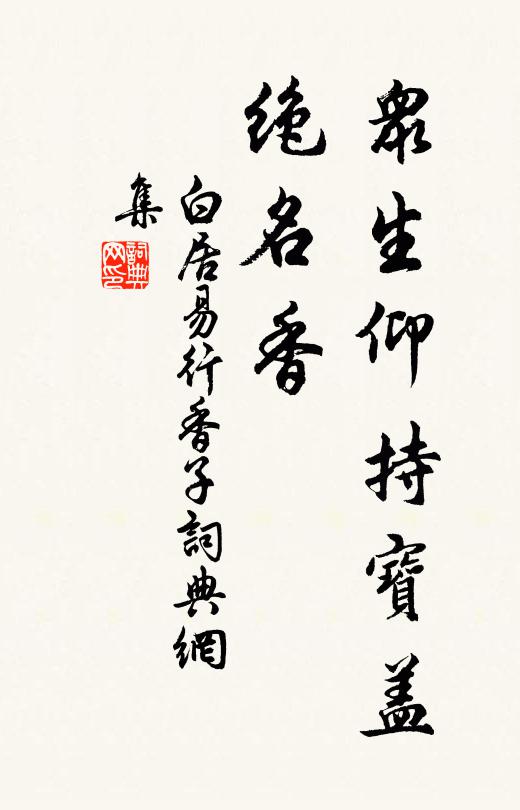 眾生仰持寶蓋
絶名香
白居易行香子詞典網
集
詞典網印